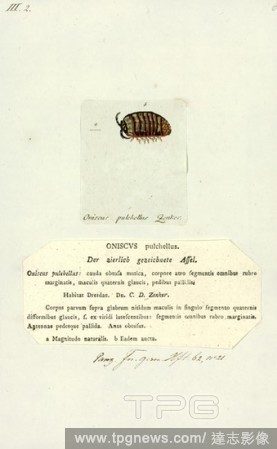 III. 2.
a
b
Oniscus pulchellus Zenker.
ONISCVS pulchellus.
Der zierlich gezeichnete Assel.
Oniscus pulchellus: cauda obtusa mutica, corpore atro segmentis omnibus rubro
marginatis, maculis quaternis glaucis, pedibus pallidis.
Habitat Dresdae. Dn. C. D. Zenker.
Corpus parvum supra glabrum nitidum maculis in singulo segmento quaternis
difformibus glaucis, s. ex viridi lutescentibus: segmentis omnibus rubro marginatis.
Antennae pedesque pallida. Anus obtusus.
a Magnitudo naturalis. b Eadem aucta.
Panz. Fn. germ. 62.
TPG
www.tpgnews.com / 達志影像